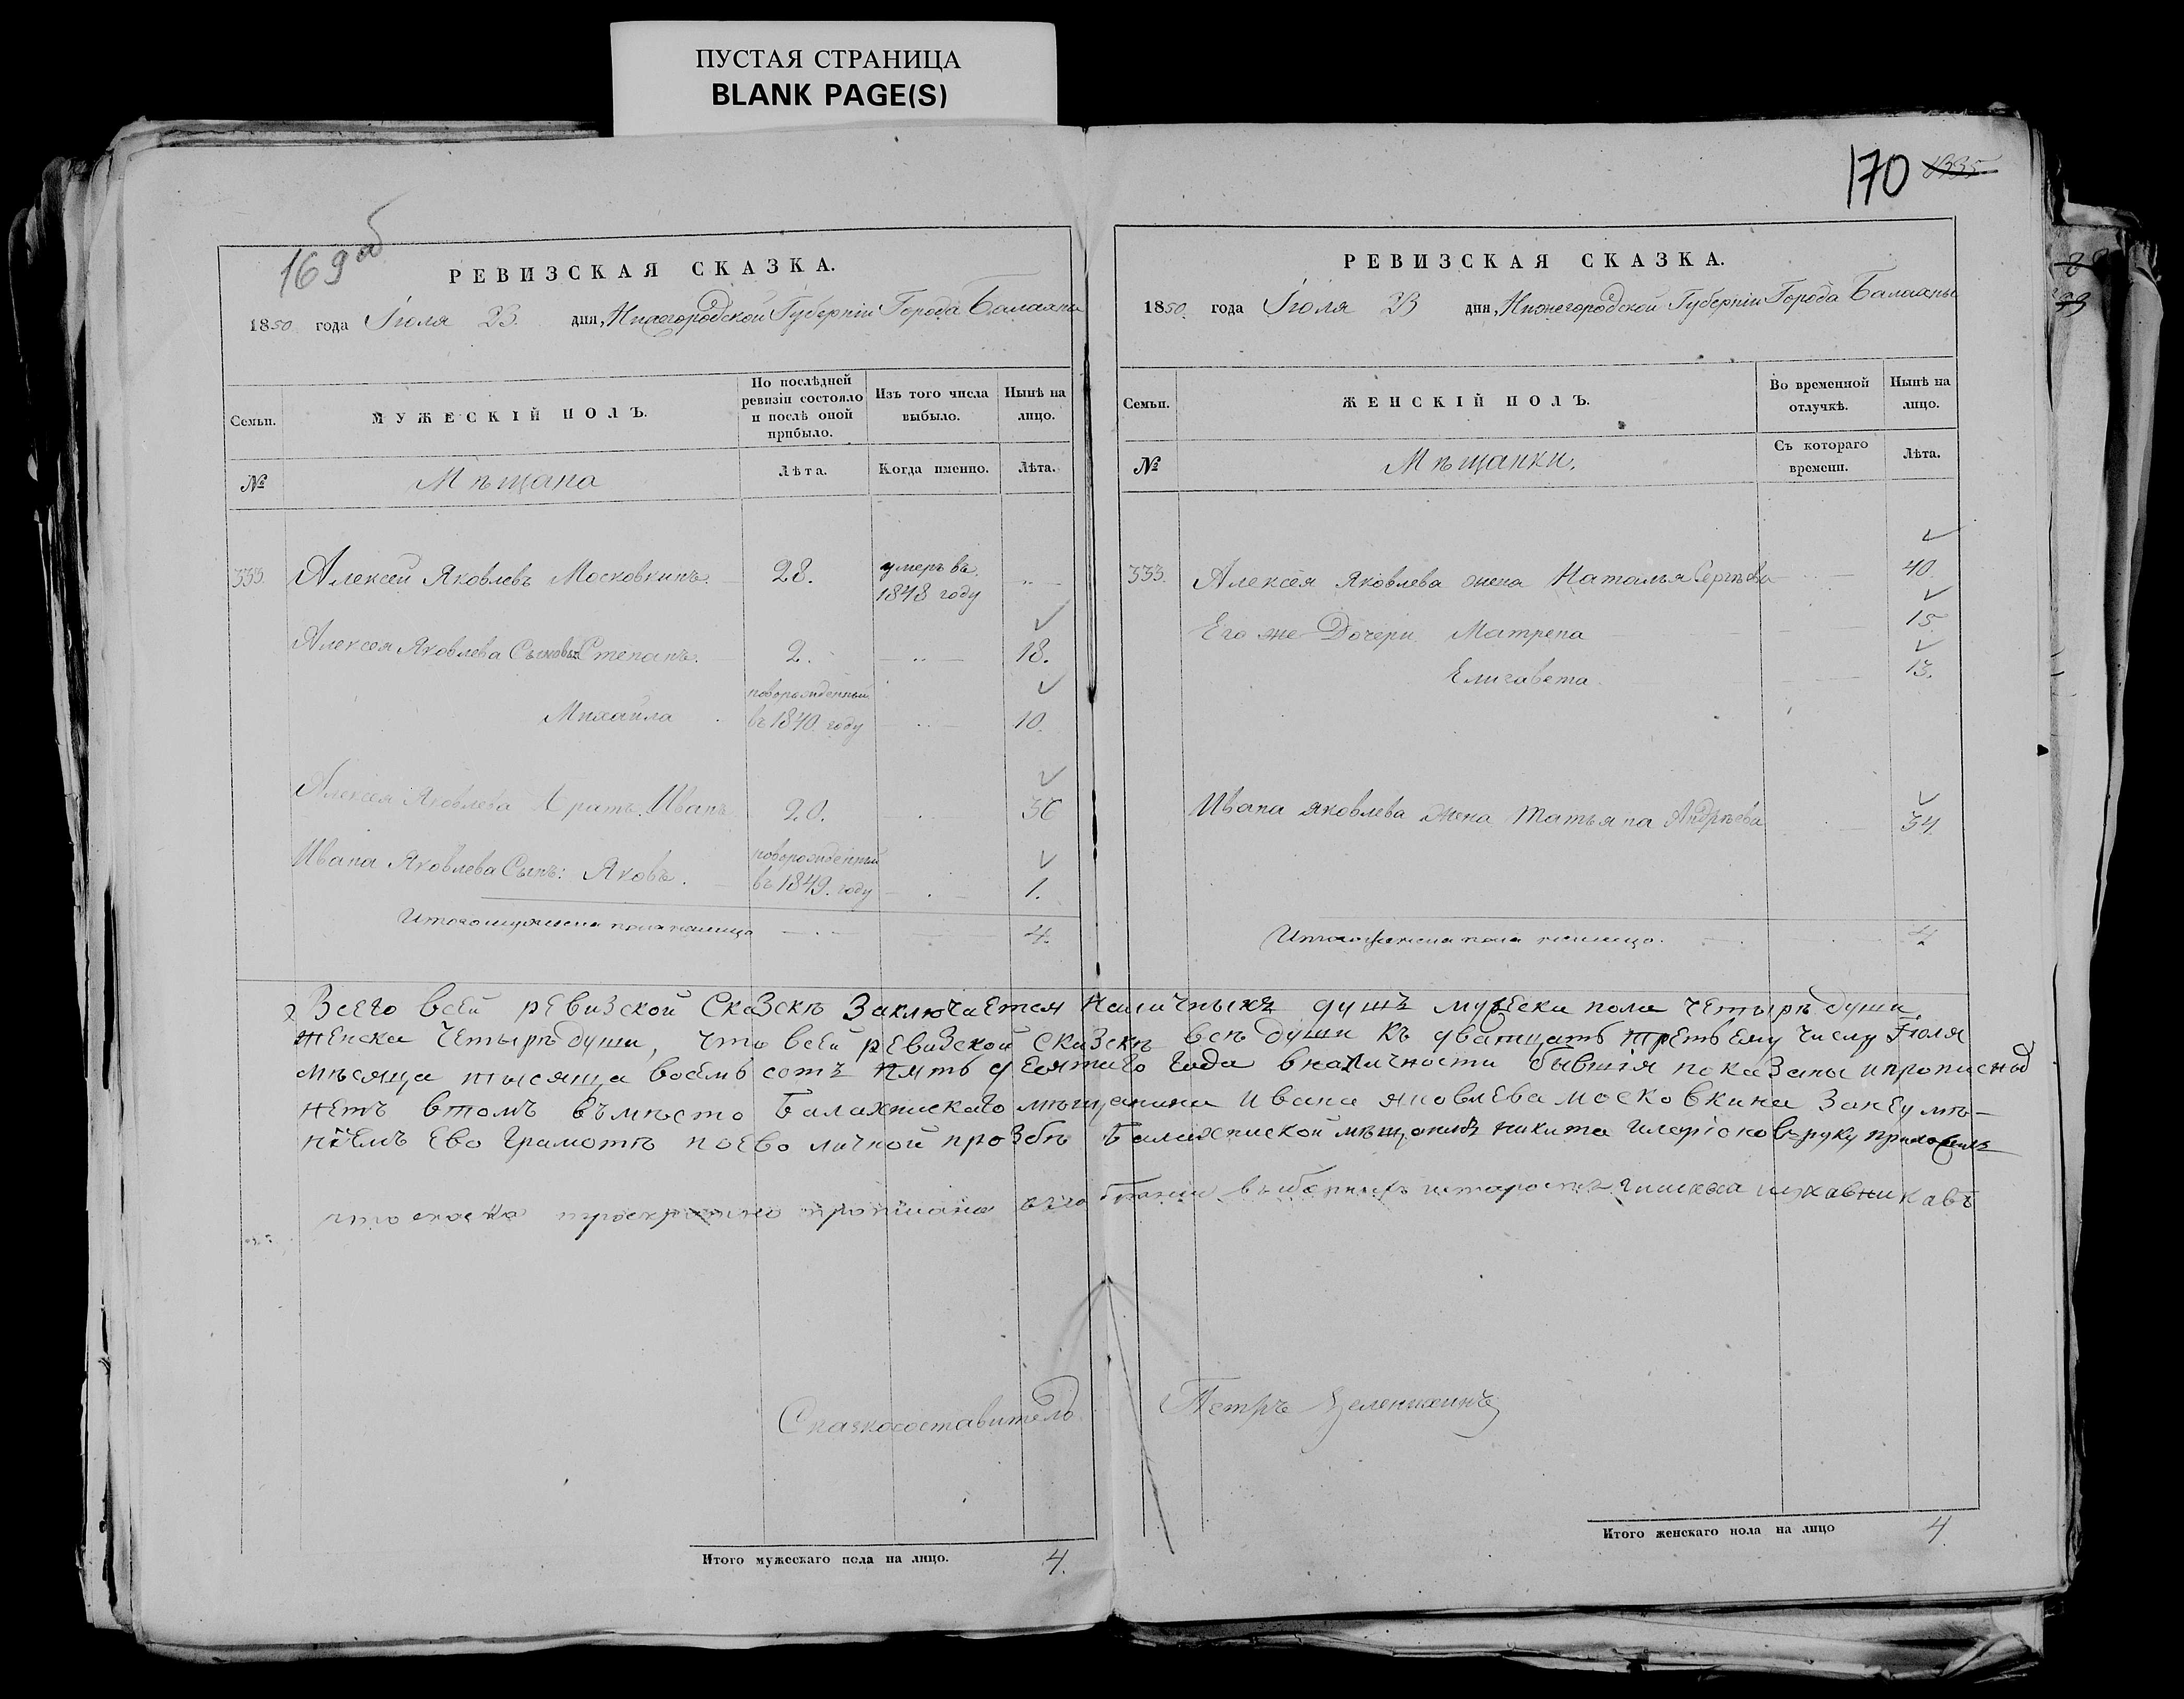 ПУСТАЯ СТРАНИЦА
BLANK PAGE(S)
169 об
РЕВИЗСКАЯ СКАЗКА.
1850 года Іюля 23. дня, Нижегородской Губерніи Города Балахны
Семьи.
МУЖЕСКІЙ ПОЛЪ.
По послѣдней ревизіи состояло и послѣ оной прибыло.
Изъ того числа выбыло.
Нынѣ на лицо.
№
Мѣщана
Лѣта.
Когда именно.
Лѣта.
333. Алексей Яковлевъ Московкинъ. 28. умеръ въ 1848 году
Алексея Яковлева Сыновья Степанъ. 2. 18.
Михайла новорожденный въ 1840 году 10.
Алексея Яковлева Братъ. Иванъ 20. 36
Ивана Яковлева Сынъ: Яковъ. новорожденный въ 1849. году 1.
Итого мужеска пола налицо 4.
170 1335
РЕВИЗСКАЯ СКАЗКА.
1850. года Іюля 23 дня, Нижегородской Губерніи Города Балахны
Семьи.
ЖЕНСКІЙ ПОЛЪ.
Во временной отлучкѣ.
Нынѣ на лицо.
№
Мѣщанки.
Съ котораго времени.
Лѣта.
333. Алексея Яковлева жена Наталья Сергѣева 40.
Его же Дочери Матрена 15
Елизавета 13.
Ивана Яковлева жена Татьяна Андрѣева 34.
Итого женска пола налицо. 4
Всего всей ревизской Сказкѣ Заключается Наличныхъ душъ мужеска пола четырѣ души,
женска четырѣ души, что всей ревизской Сказкѣ всѣ души къ дватцать третьему числу Іюля
мѣсяца тысяща восемь сотъ пять десятаго года вналичности бывшія показаны ипрописныд
нетъ втомъ въмѣсто Балахнискаго мѣщанина Ивана яковлева московкина Занеумѣ-
ніемъ ево грамотѣ поево личной прозбѣ Балахнискои мѣщанинъ никита иларіоновъ руку приложилъ
Сказкосоставитель Петръ Зеленихинъ
Итого мужескаго пола на лицо. 4.
Итого женскаго пола на лицо 4